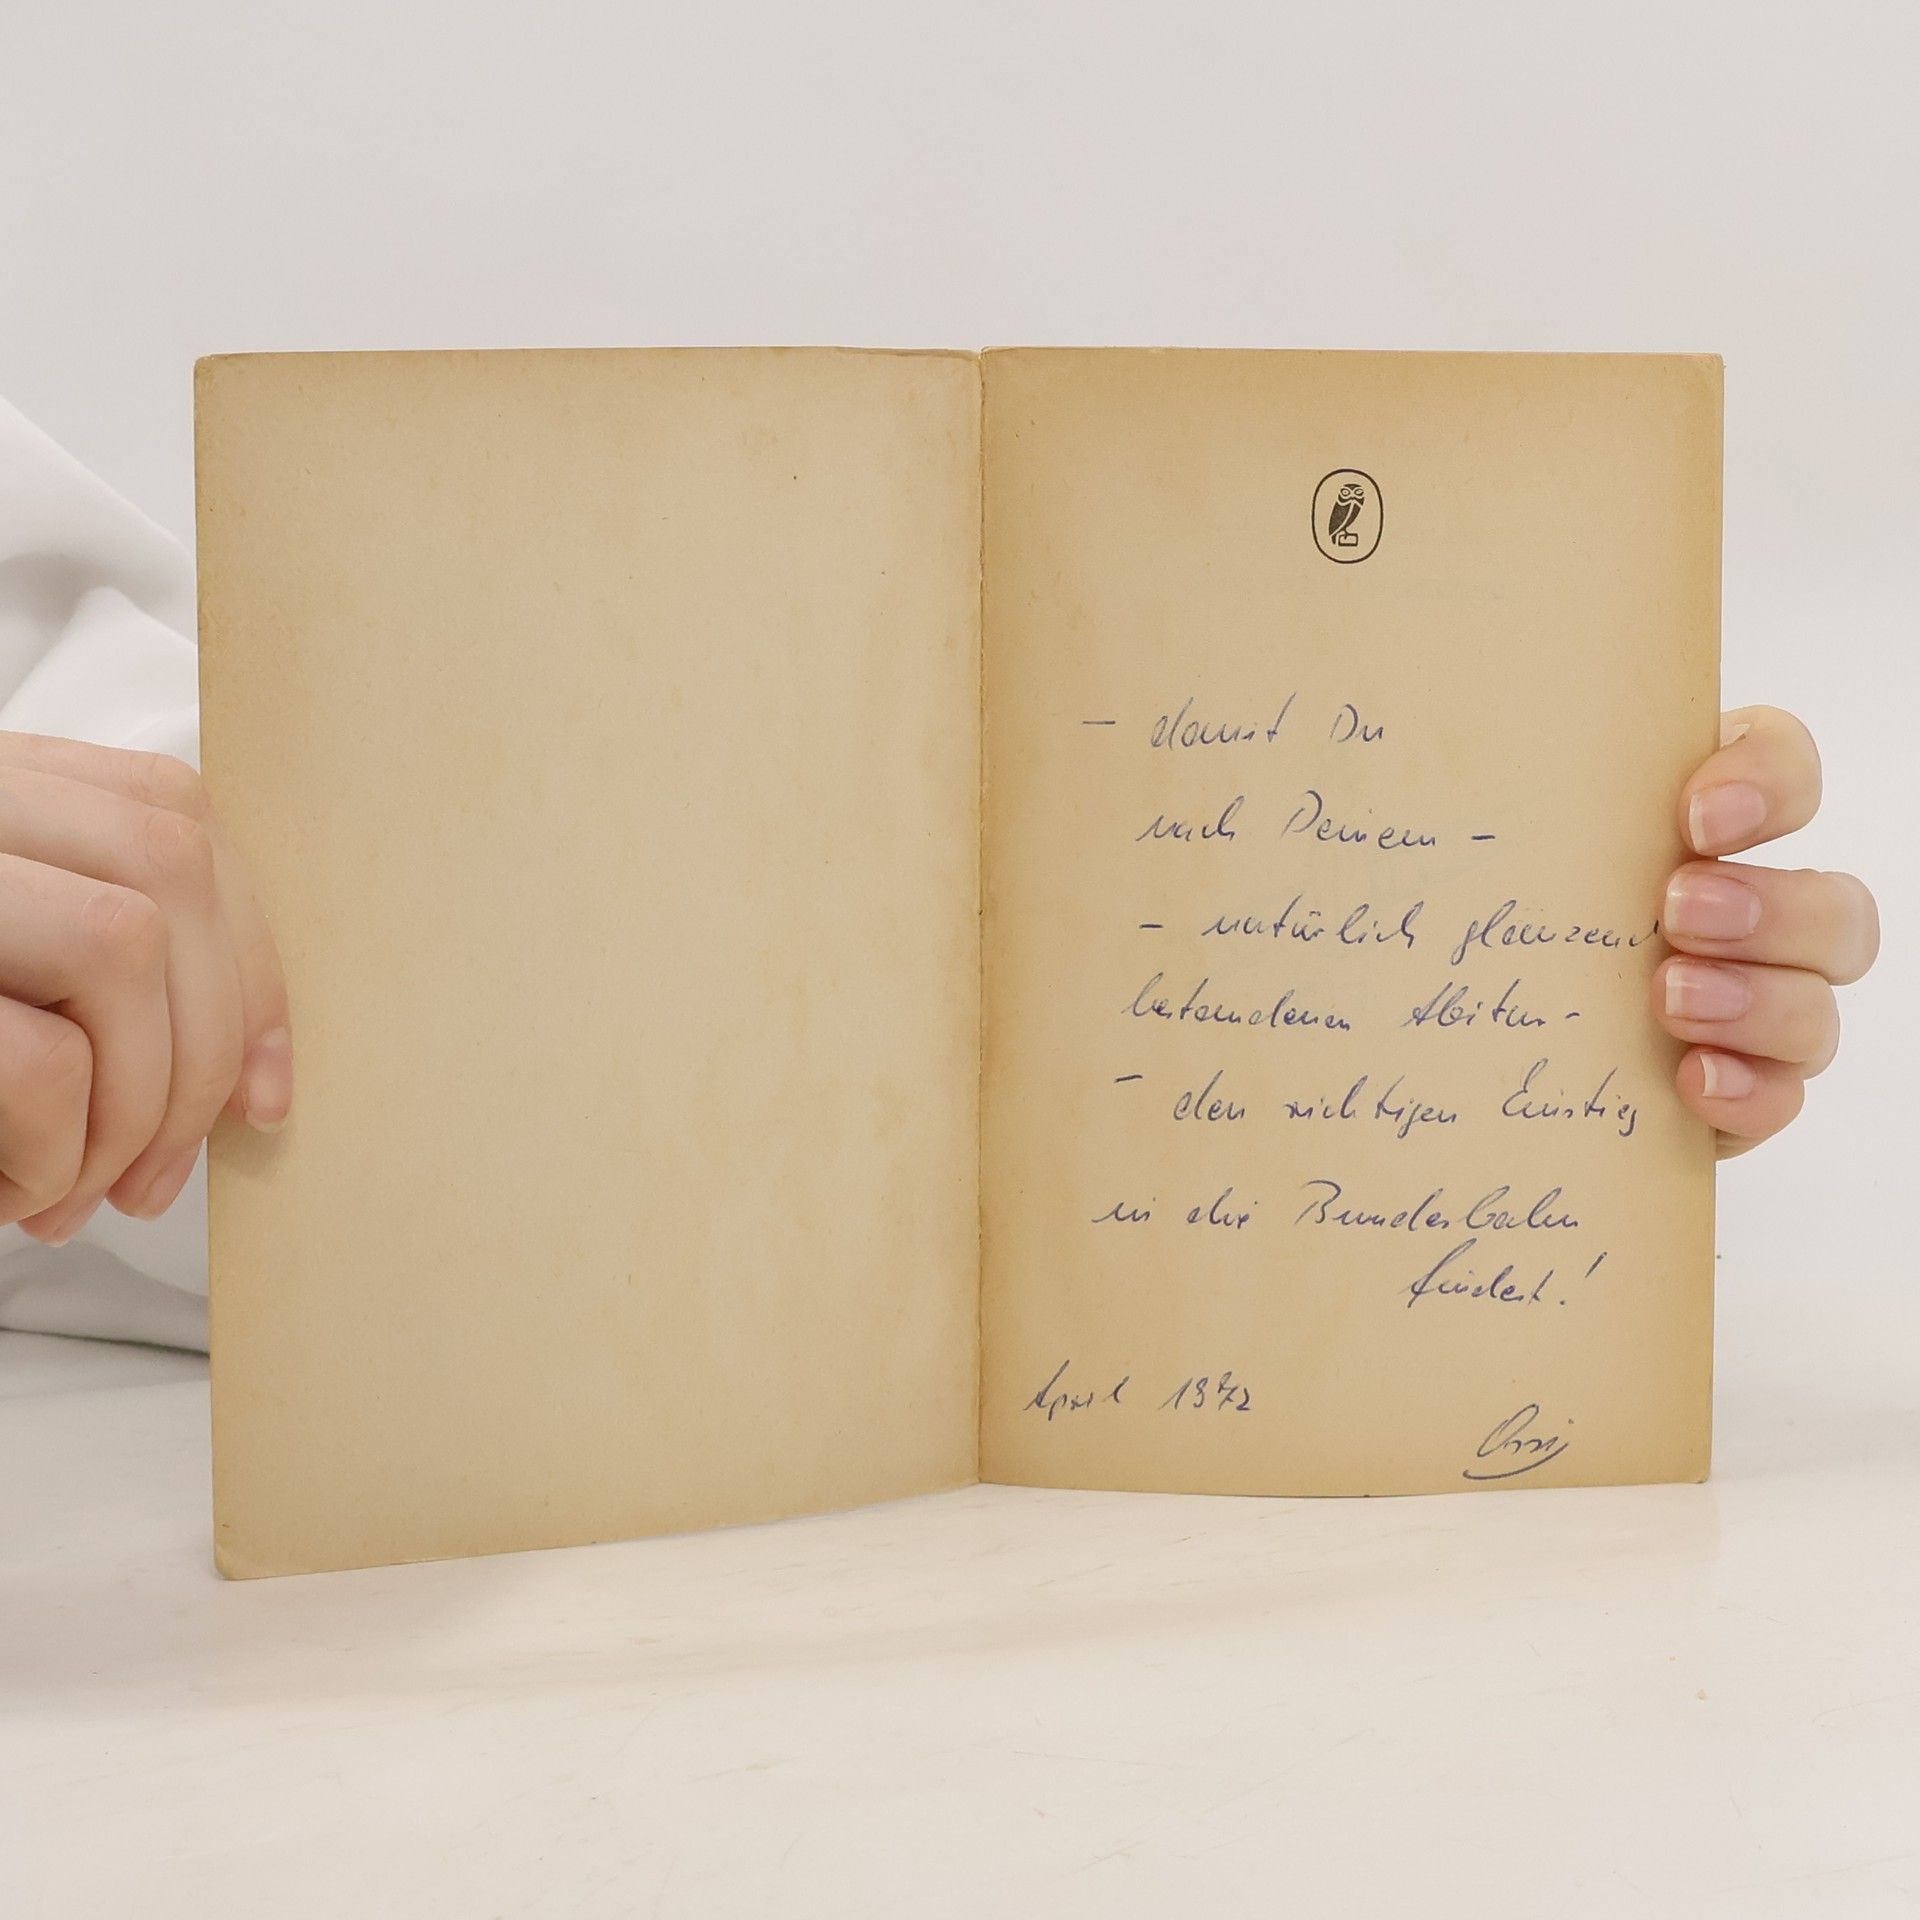 – damit Du
nach Deinem –
– natürlich glänzend
bestandenen Abitur –
– den richtigen Einstieg
in die Bundesbahn
findest!
April 1972
Ossi